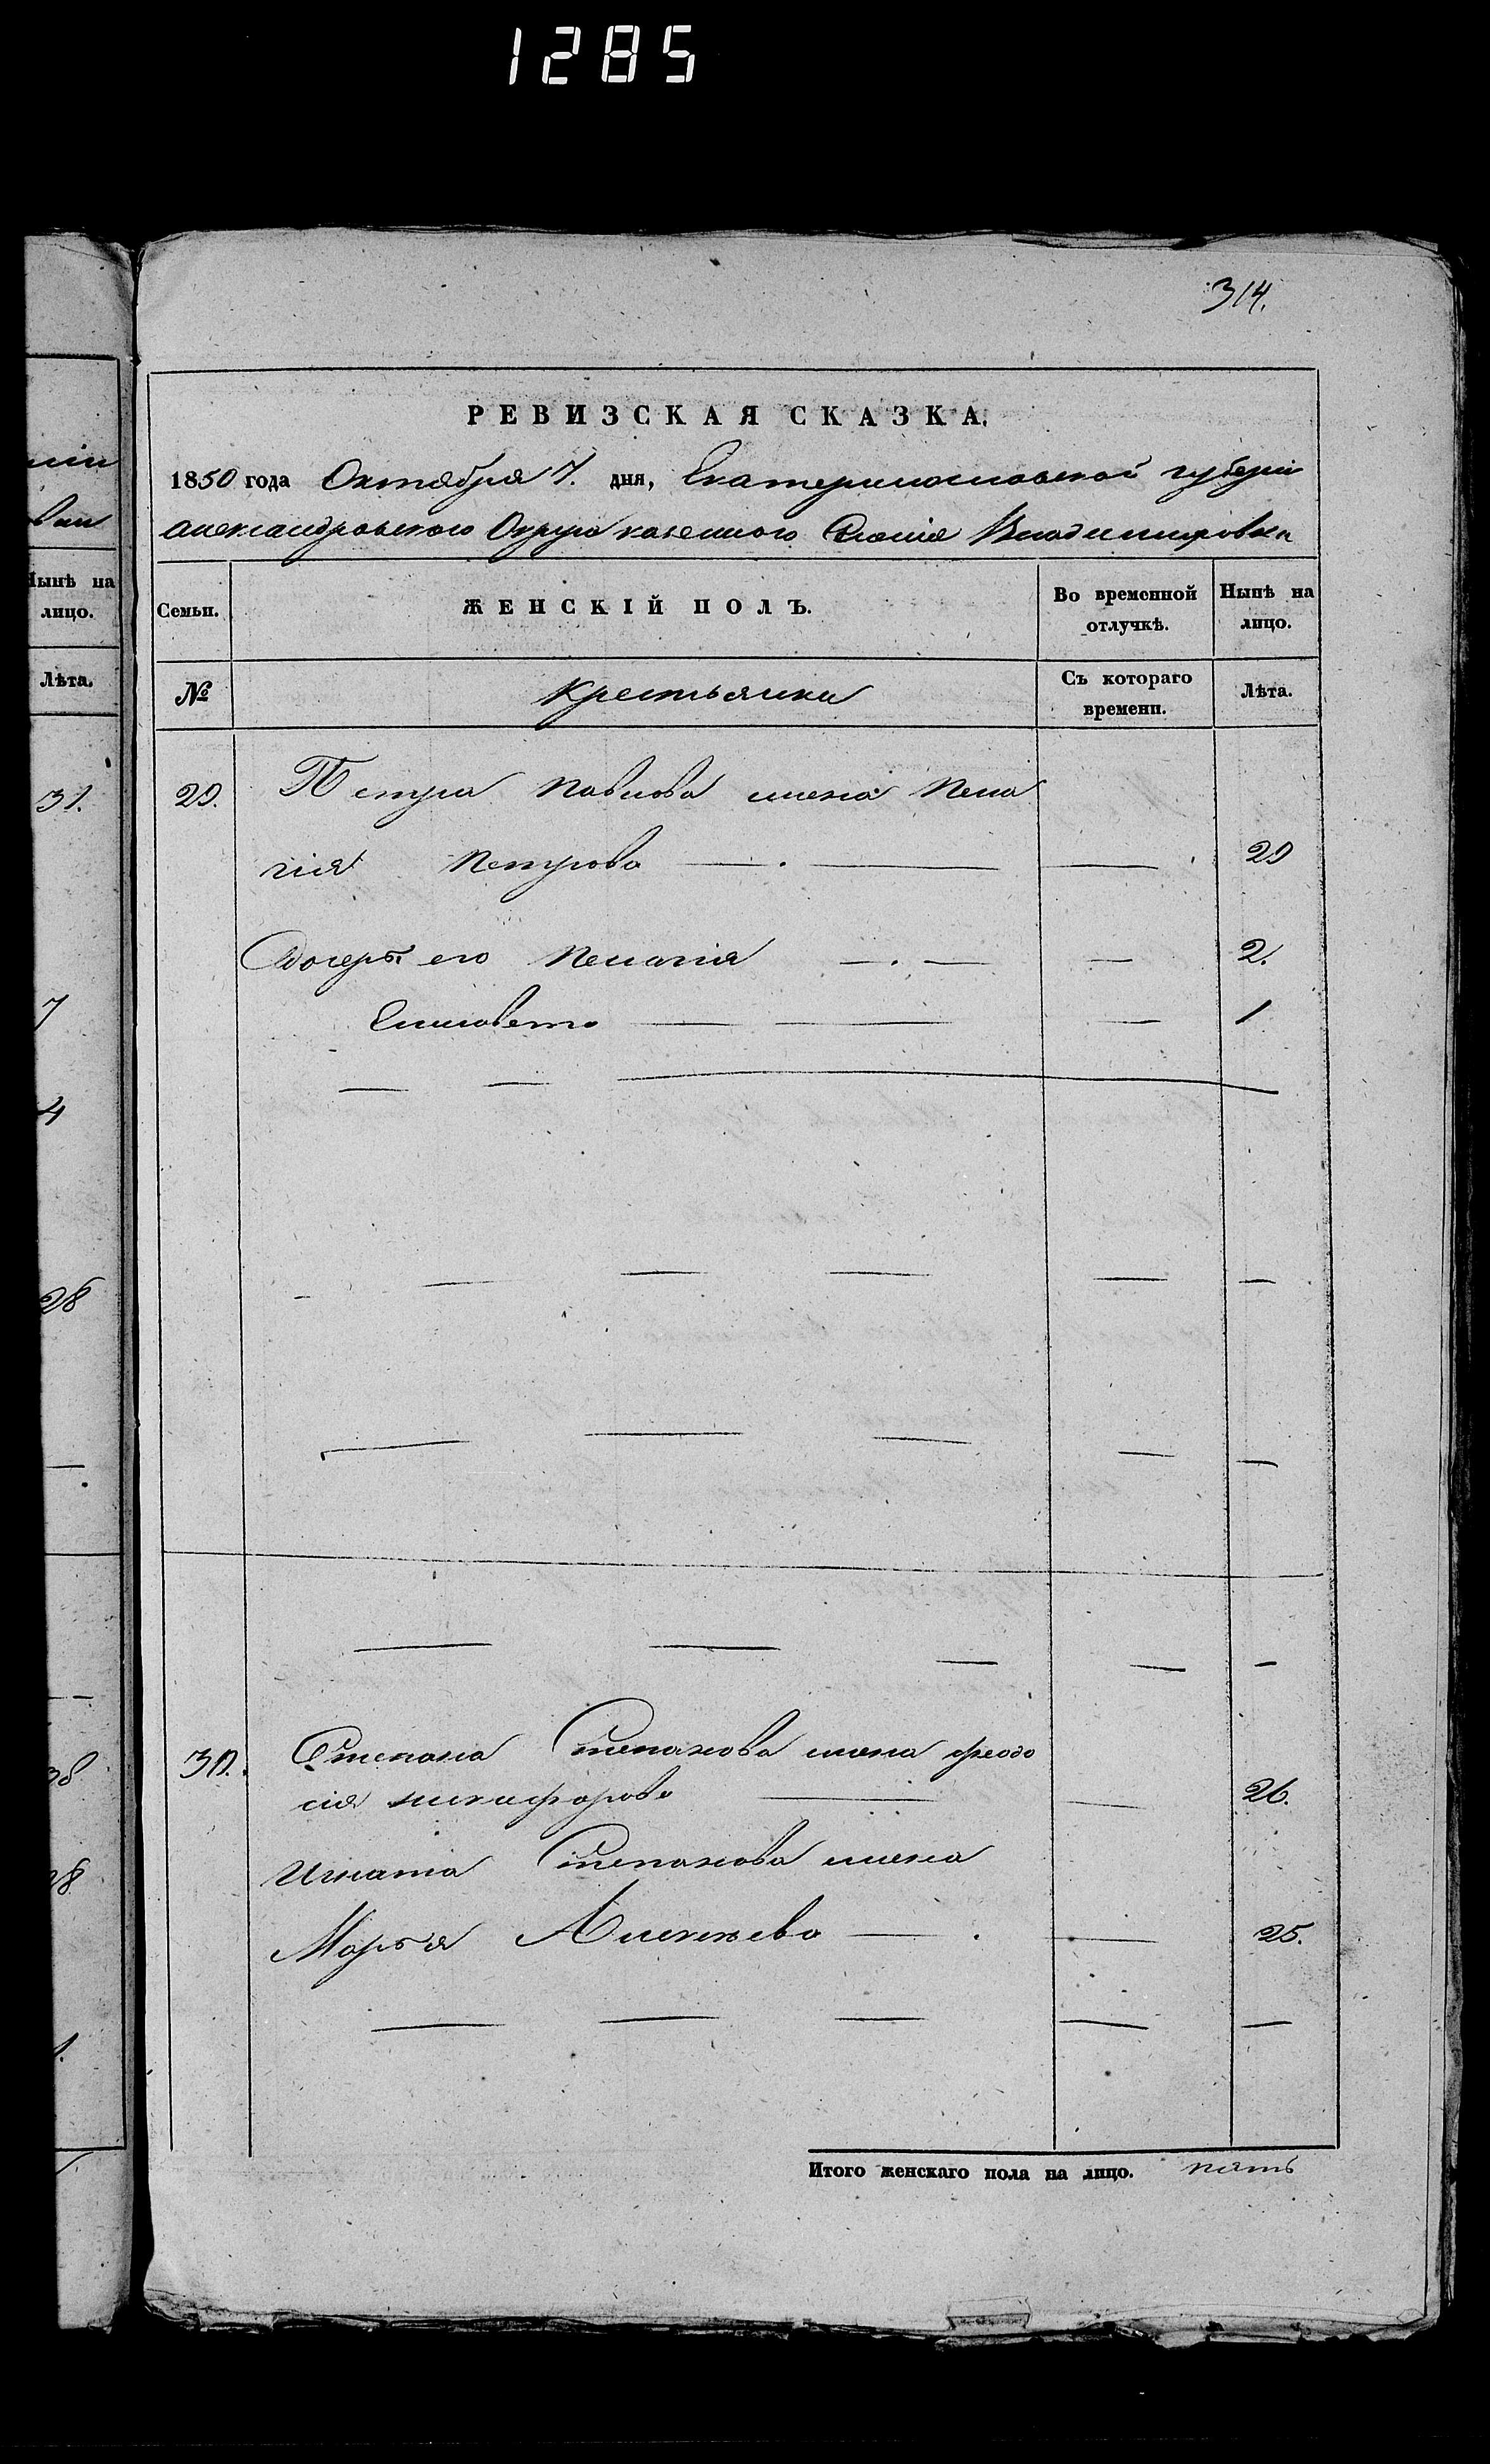 1285
314.
РЕВИЗСКАЯ СКАЗКА.
1850 года Октября 7. дня, Екатеринославской губерніи
Александровского Округа казенного Селенія Владимировки
Семьи.
ЖЕНСКІЙ ПОЛЪ.
Во временной отлучкѣ.
Нынѣ на лицо.
№
Крестьянки
Съ котораго времени.
Лѣта.
29. Петра Павлова жена Пела
гія Петрова — . — — 29
Дочеры его Пелагія — . — — 2.
Елисовета — — — 1
30. Степана Степанова жена феодо
сія никифорова — — 26.
Игната Степанова жена
Марья Алексѣева — . — 25.
Итого женскаго пола на лицо. пять
Нынѣ на
лицо.
Лѣта.
31.
7
4
28